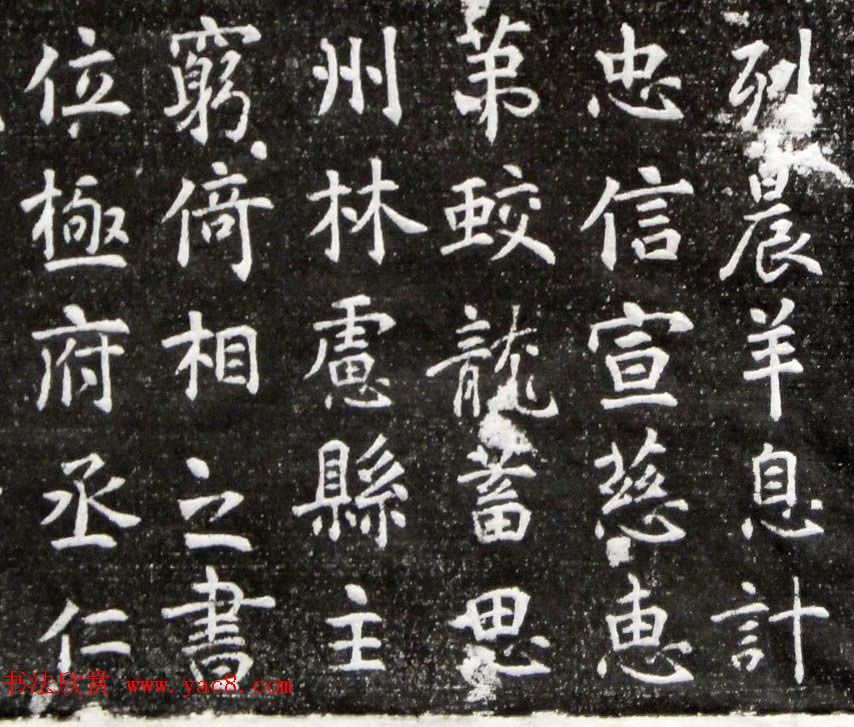 列晨羊息計
忠信宣慈惠
第蛟龍蓄思
州林慮縣主
窮倚相之書
位極府丞仁
书法欣赏 www.yac8.com